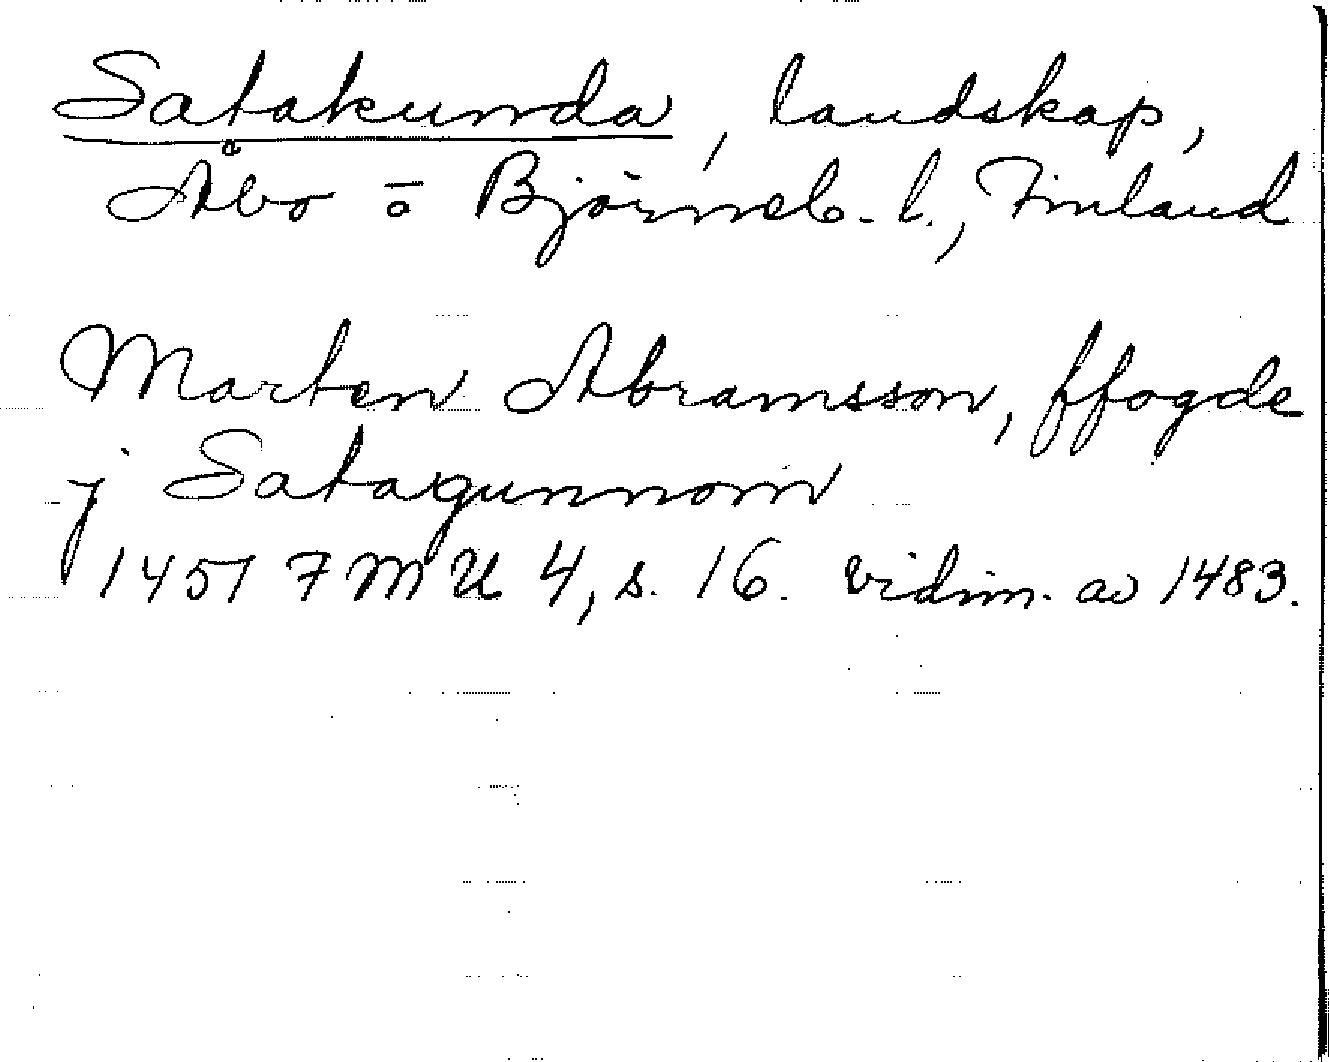 Satakunda, landskap,
Åbo o Björneb. l., Finland
Marten Abramsson, ffogde
j Satagunnom
1451 FMU 4, s. 16. vidim. av 1483.